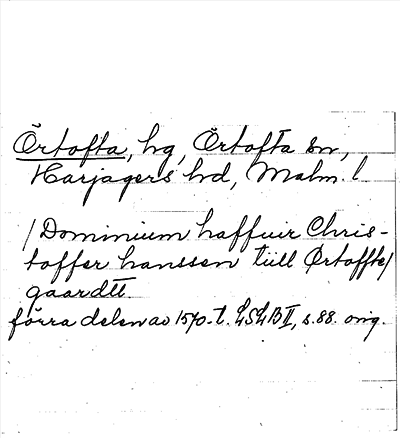 Örtofta, hg, Örtofta sn,
Harjagers hd, Malm. l
/Dominium haffuir Chris-
toffer hanssen tiill Ørtoffte/
gaardtt
förra delen av 1570-t. LSLB II, s. 88. orig.